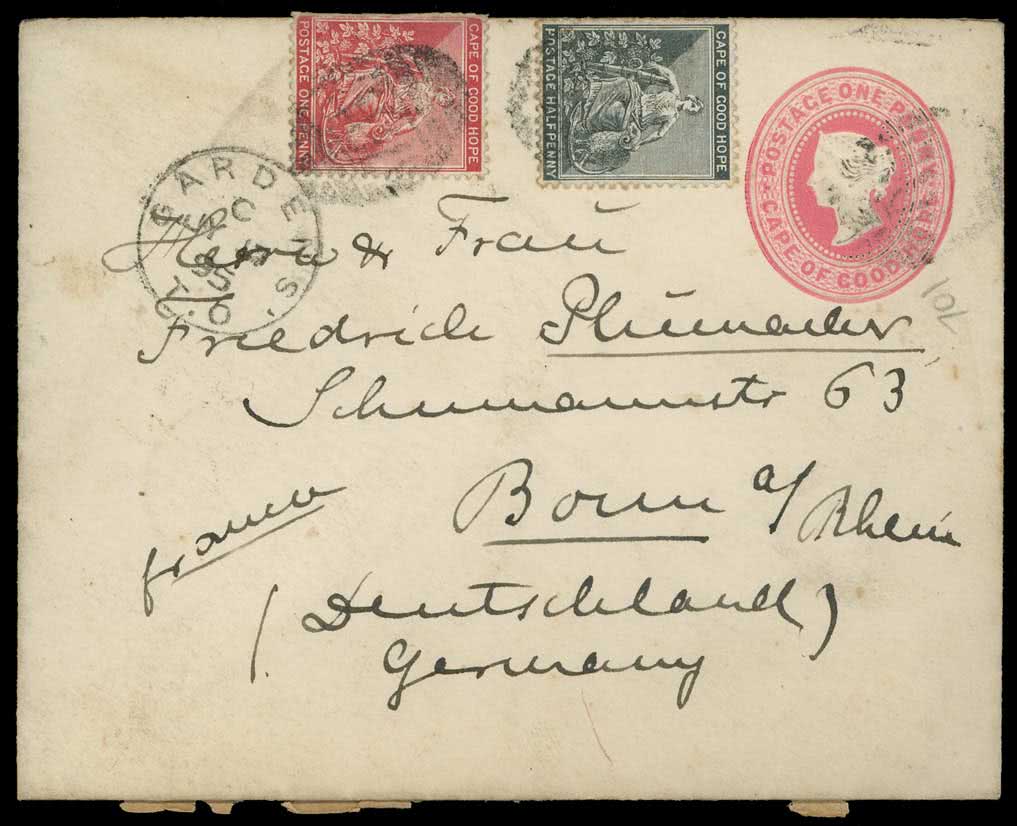 CAPE OF GOOD HOPE
POSTAGE ONE PENNY
CAPE OF GOOD HOPE
POSTAGE HALFPENNY
POSTAGE ONE PENNY
CAPE OF GOOD HOPE
GARDENS.
95
Herrn & Frau
Friedrich
Schumannstr 63
franco
Bonn a/Rhein
(Deutschland)
Germany